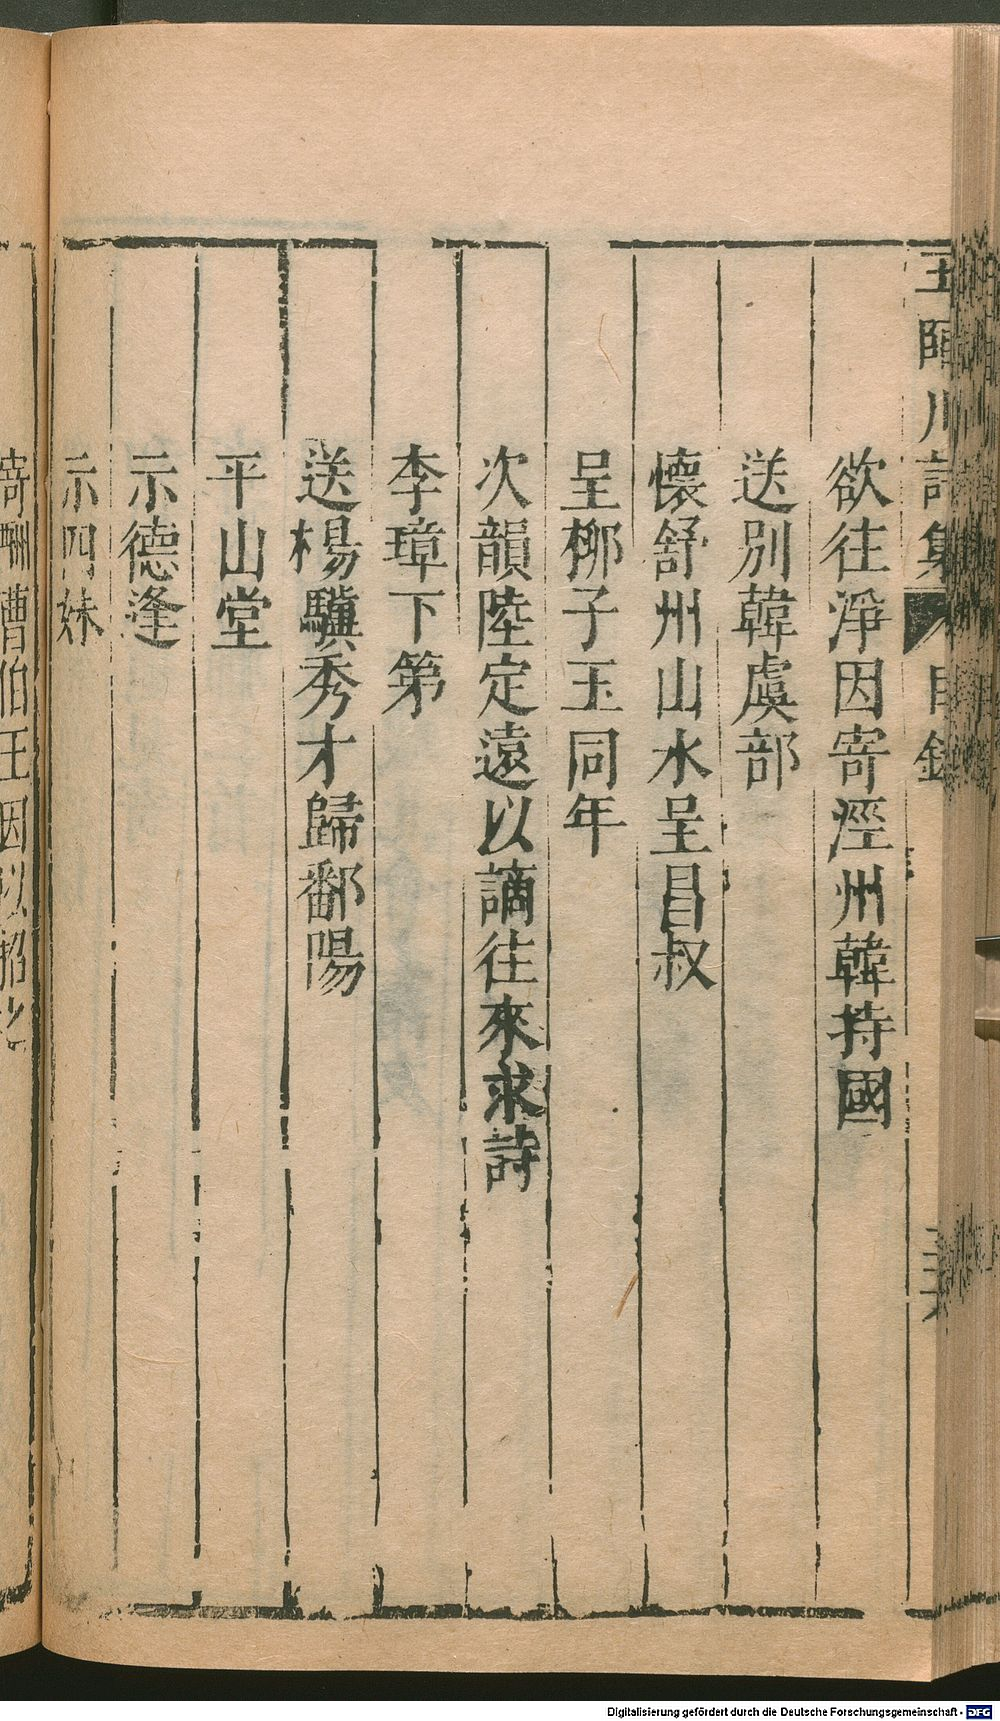 王臨川詩集 目錄
欲往淨因寄涇州韓持國
送別韓虞部
懷舒州山水呈昌叔
呈栁子玉同年
次韻陸定遠以謫往來求詩
李璋下第
送楊驥秀才歸鄱陽
平山堂
示德逢
示四妹
寄酬曹伯玉因以招之
Digitalisierung gefördert durch die Deutsche Forschungsgemeinschaft - DFG